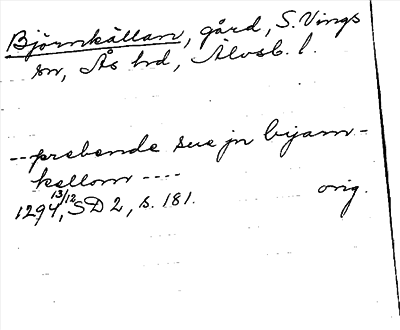 Björnkällan, gård, S. Vings
sn, Ås hd, Älvsb. l.
-- prebende sue jn bijarn-
kellom ----
1294 13/12, SD 2, s. 181. orig.